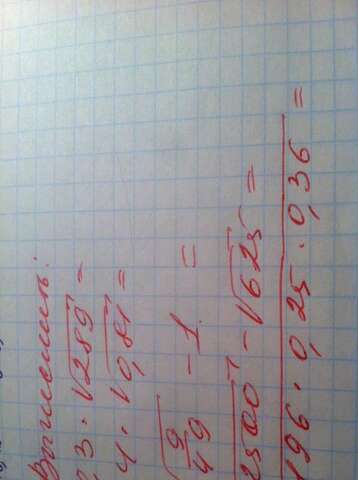 Вычислить:
,3 · √289 =
4 · √0,81 =
√9/49 - 1 =
2500 - √625 =
196 · 0,25 · 0,36 =